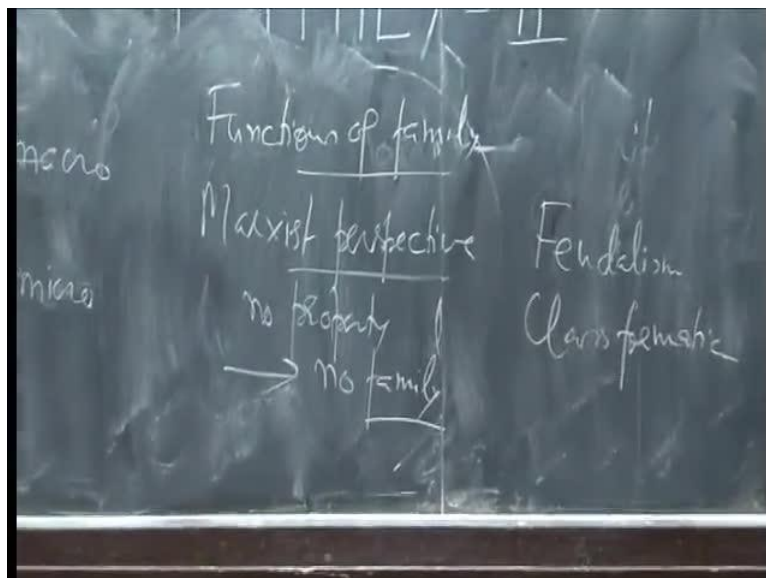 FAMILY - II
macro
micro
Functions of family
Marxist perspective
no property
→ no family
Feudalism
Class formatic